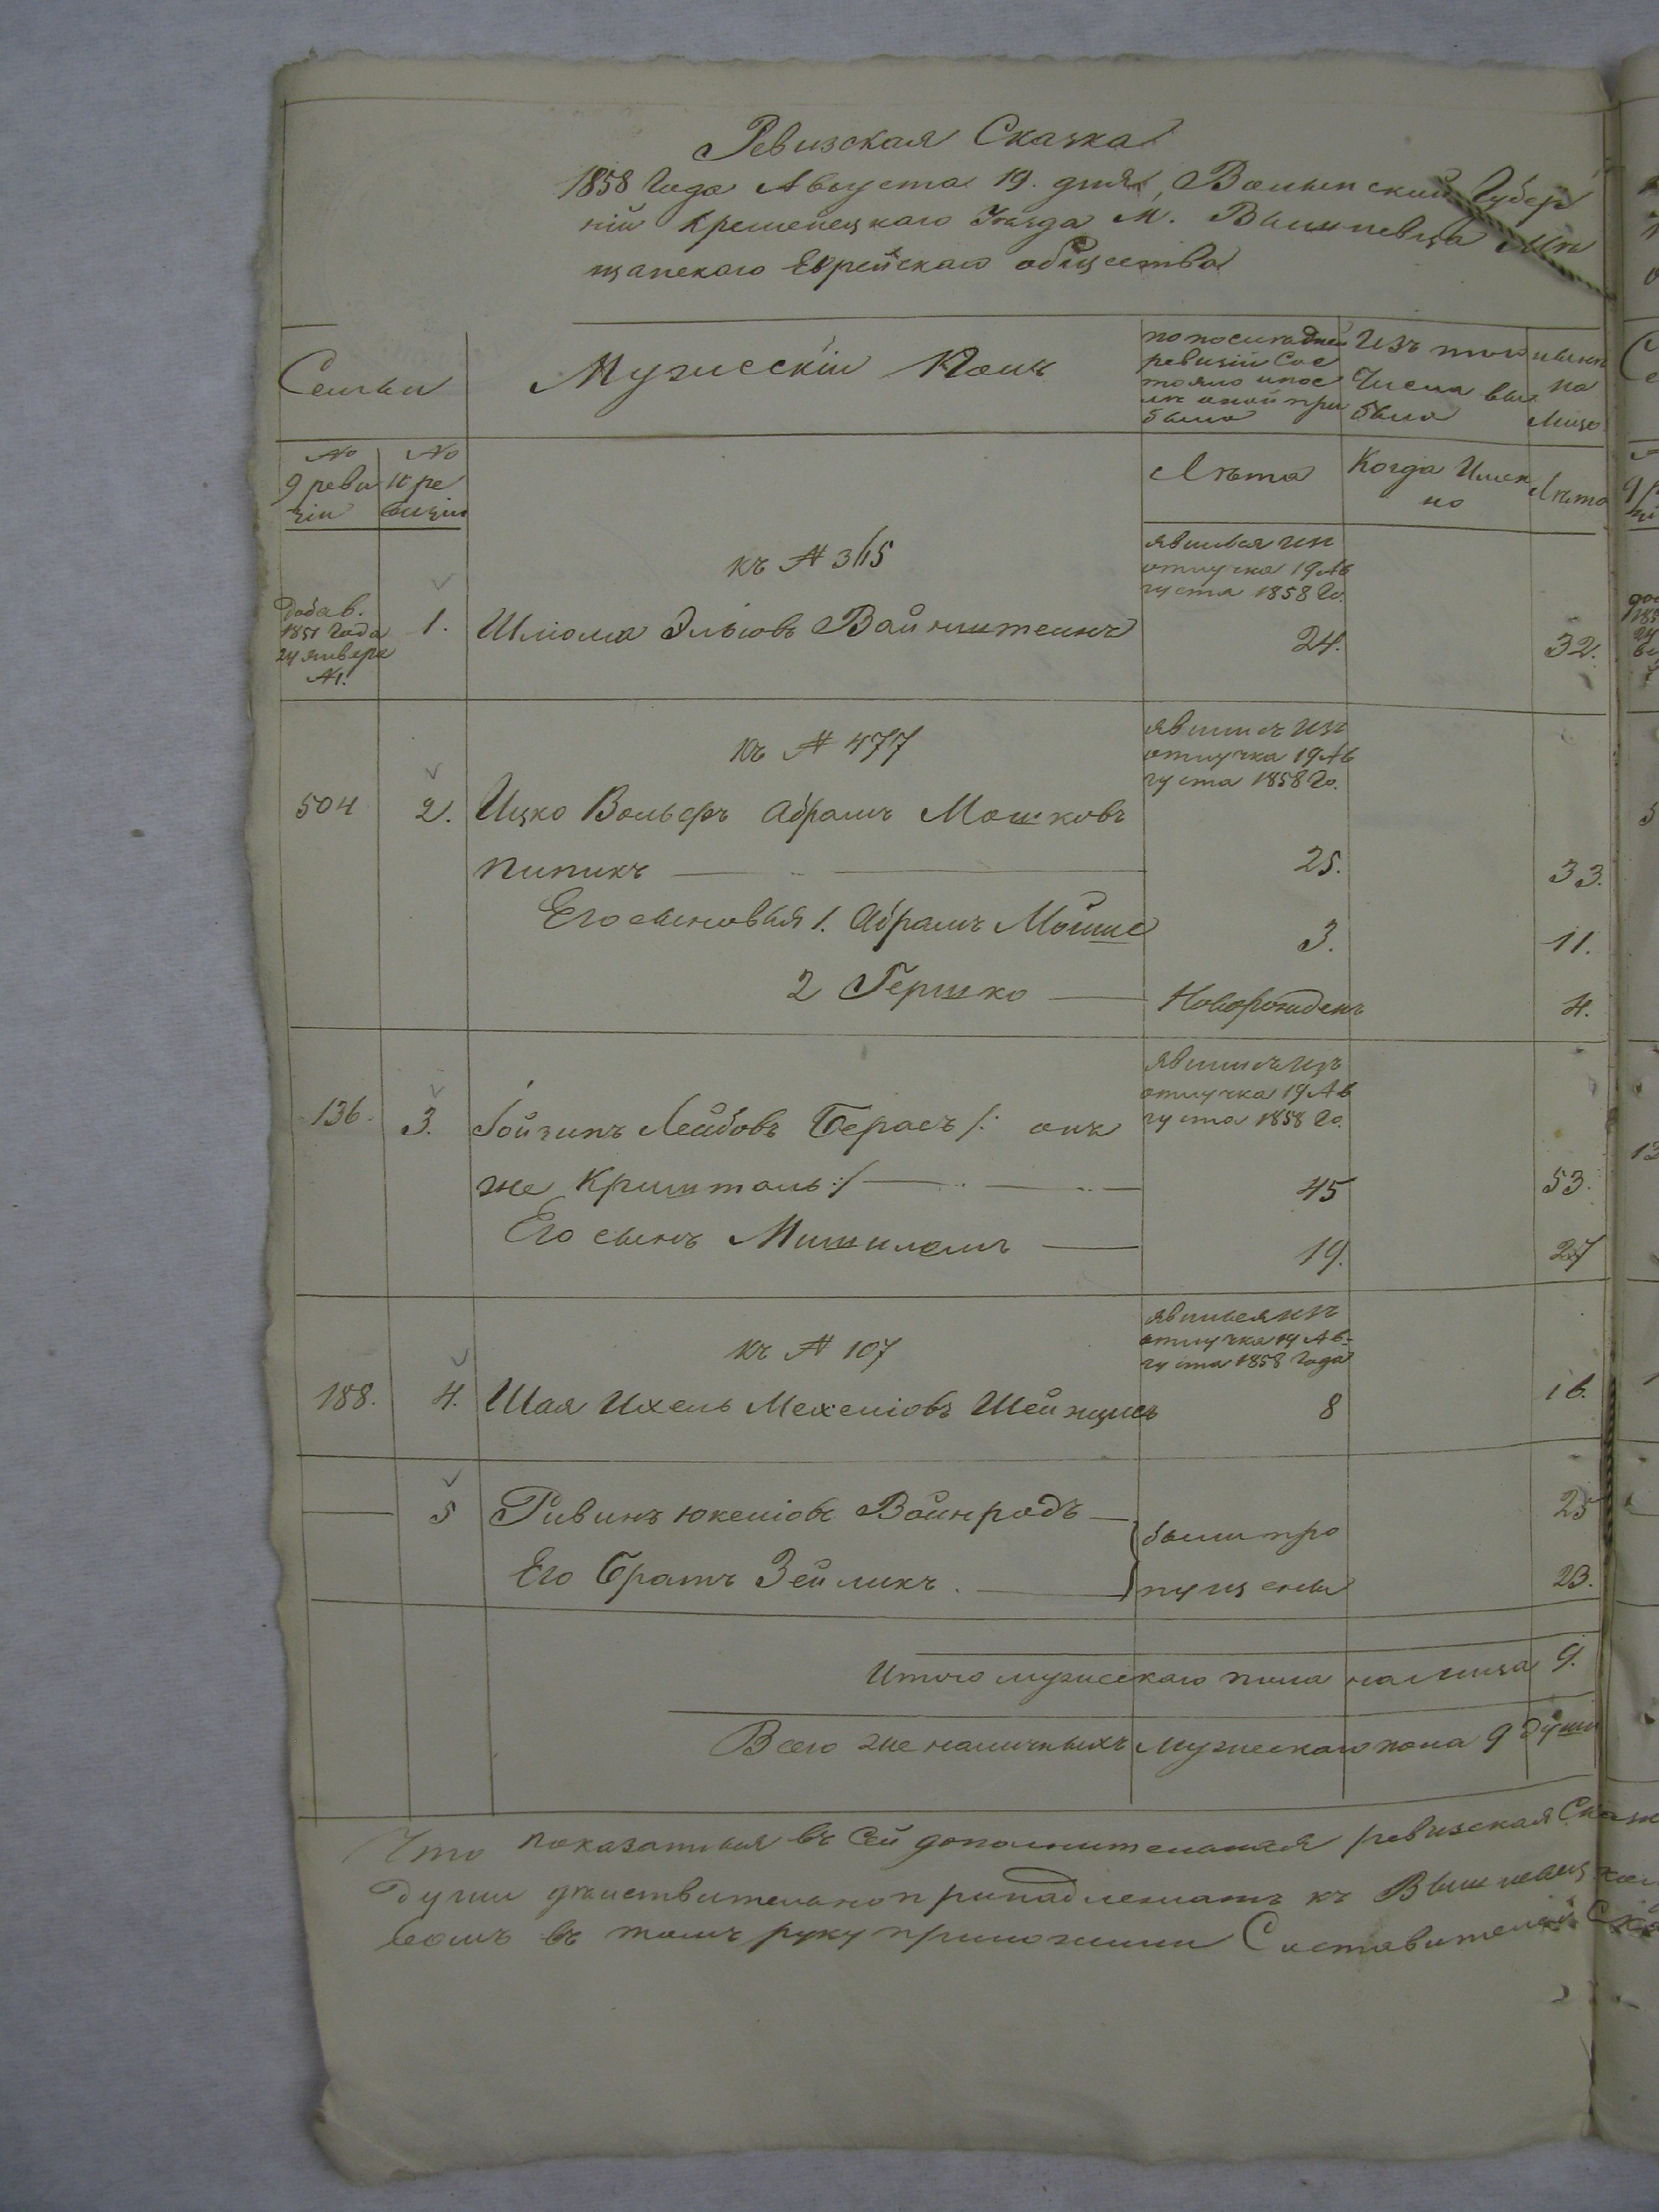 Ревизская Сказка
1858 Года Августа 19. дня, Волынский Губер
нiи Кременецкаго Уѣзда М. Вишневца Мѣ
щанскаго Еврейскаго общества
Семьи
Мужескiй Полъ
по последней
ревизiи Сос
тояло и пос
лѣ оной при
было
Изъ того
Числа вы
было
нынѣ
на
лицо
№
9 реви
зiи
№
10 ре
визiи
Лѣта
Когда Имен
но
Лѣта
къ № 365
явился изъ
отлучка 19 Ав
густа 1858 Го.
Добав.
1851 Года
24 Январе
№ 1.
1. Шлiома Эльiовъ Вайнштеинъ 24. 32.
къ № 477
явились изъ
отлучка 19 Ав
густа 1858 Го.
504 2. Ицко Вольфъ Абрамъ Мошковъ
Пипикъ 25. 33.
Его сыновья 1. Абрамъ Мошке 3. 11.
2 Гершко Новорожденъ 4.
явились изъ
отлучка 19 Ав
густа 1858 Го.
136. 3. Гойзипъ Лейбовъ Берасъ /: онъ
же Кришталь :/ 45 53.
Его сынъ Мишиломъ 19. 27
къ № 107
явился изъ
отлучка 19 Ав-
густа 1858 Года
188. 4. Шая Ихель Мехелiовъ Шейнцисъ 8 16.
5 Ривинъ Юкелiовъ Войнродъ 25
были про
Его Братъ Зейликъ. 23.
пущены
Итого мужескаго пола на лица 9.
Всего же наличныхъ мужескаго пола 9 души
Что показанныя въ Сей дополнительная ревизская Сказк
души дѣиствительно принадлежатъ къ Вишневец
въ томъ руку приложили Составители